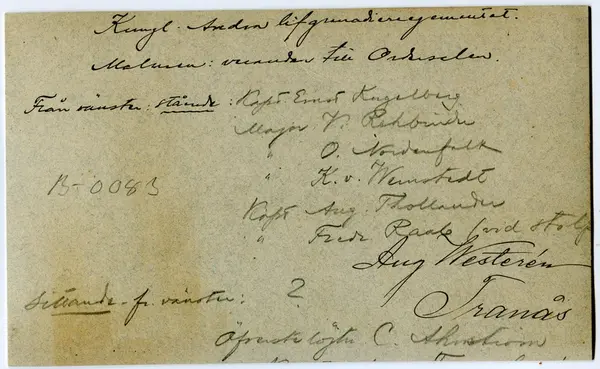 Kungl. Andra lifgrenadieregementet.
Malmen: verandan till Ordersalen.
Från vänster: stående: Kapt Ernst Engelberg
Major V. Rehbinder
" O. Nordenfalk
" K. v. Wernstedt
B-0083
Kapt Aug. Thollander
" Fredr Raab (vid stolp
Aug Westerén
Sittande - fr. vänster: ?
Tranås
Öfverstelöjtn C.